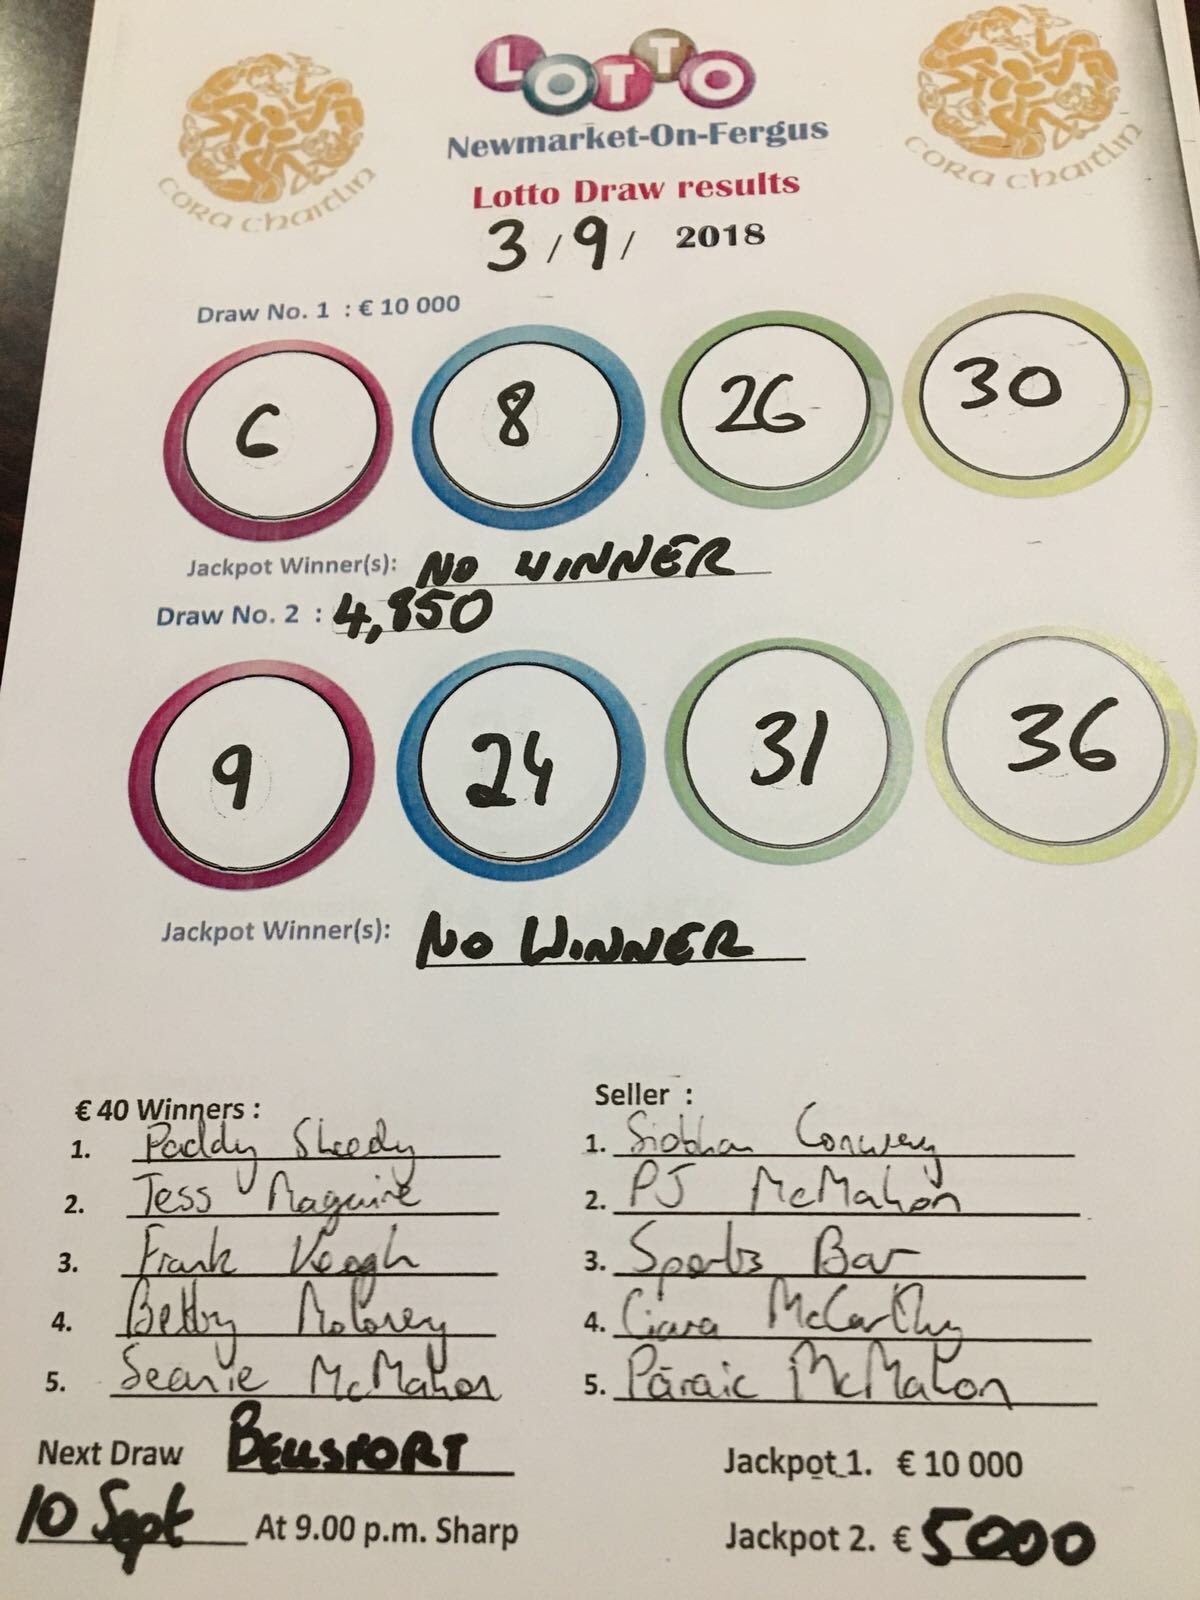 LOTTO
CORA CHAITLIN
CORA CHAITLIN
Newmarket-On-Fergus
Lotto Draw results
3/9/ 2018
Draw No. 1 : € 10 000
6 8 26 30
Jackpot Winner(s): NO WINNER
Draw No. 2 : 4,850
9 24 31 36
Jackpot Winner(s): NO WINNER
€ 40 Winners :
1. Paddy Sheedy
2. Tess Maguire
3. Frank Keogh
4. Betty Moloney
5. Seanie McMahon
Seller :
1. Siobhan Conway
2. PJ McMahon
3. Sports Bar
4. Ciara McCarthy
5. Páraic McMahon
Next Draw BELLSFORT
10 Sept At 9.00 p.m. Sharp
Jackpot 1. € 10 000
Jackpot 2. € 5000